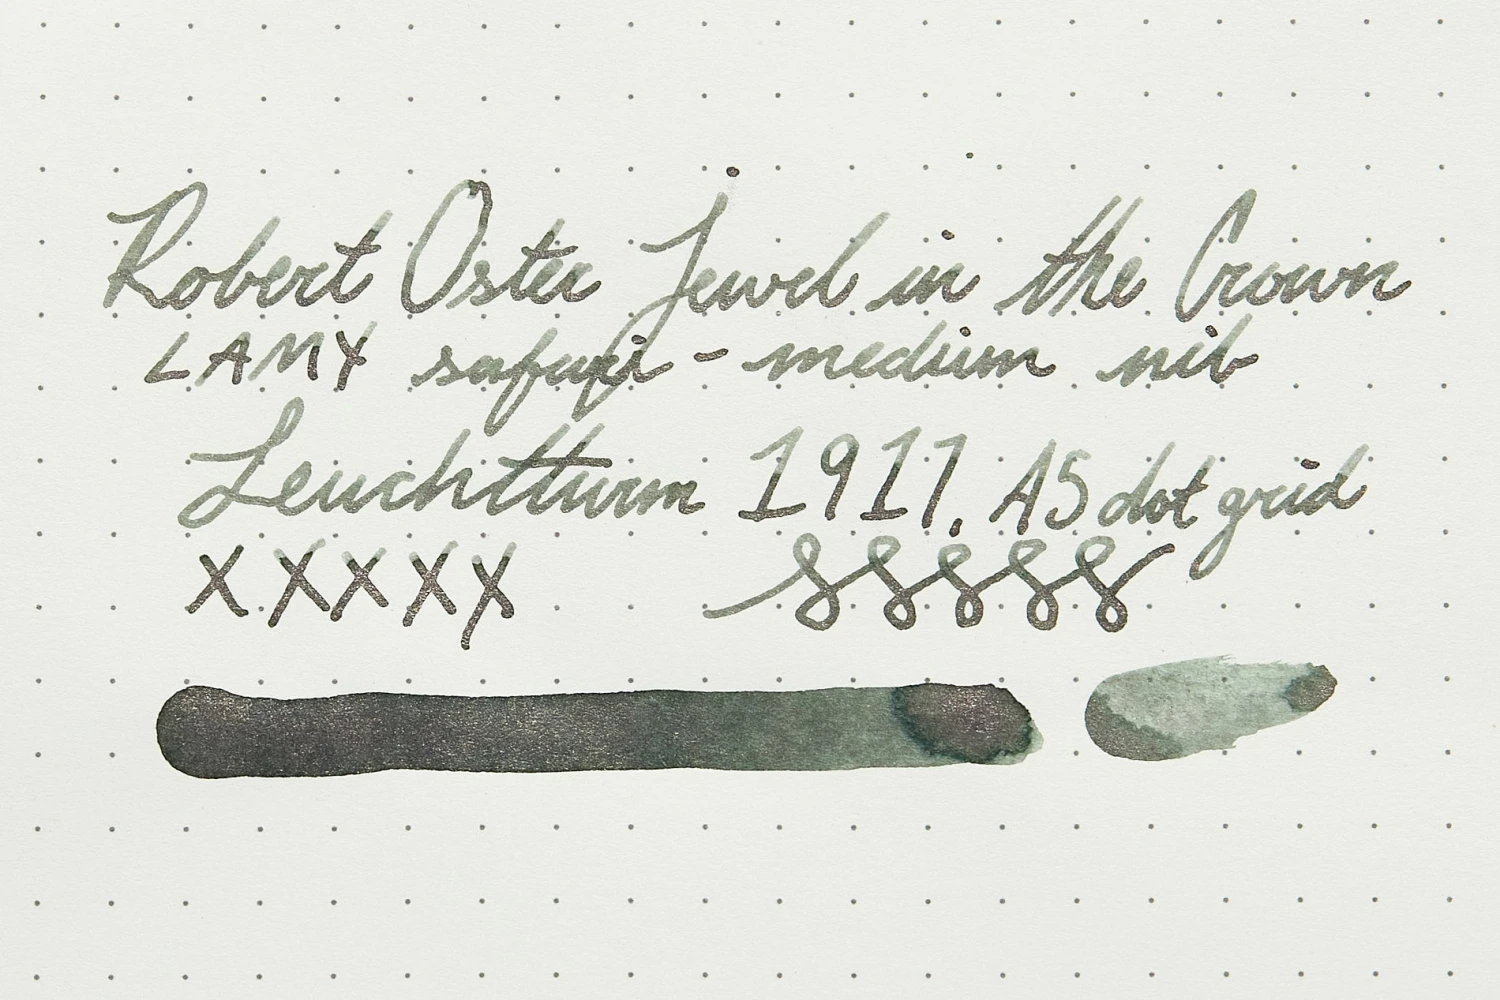 Robert Oster Jewel in the Crown
LAMY safari - medium nib
Leuchtturm 1917, A5 dot grid
X X X X X